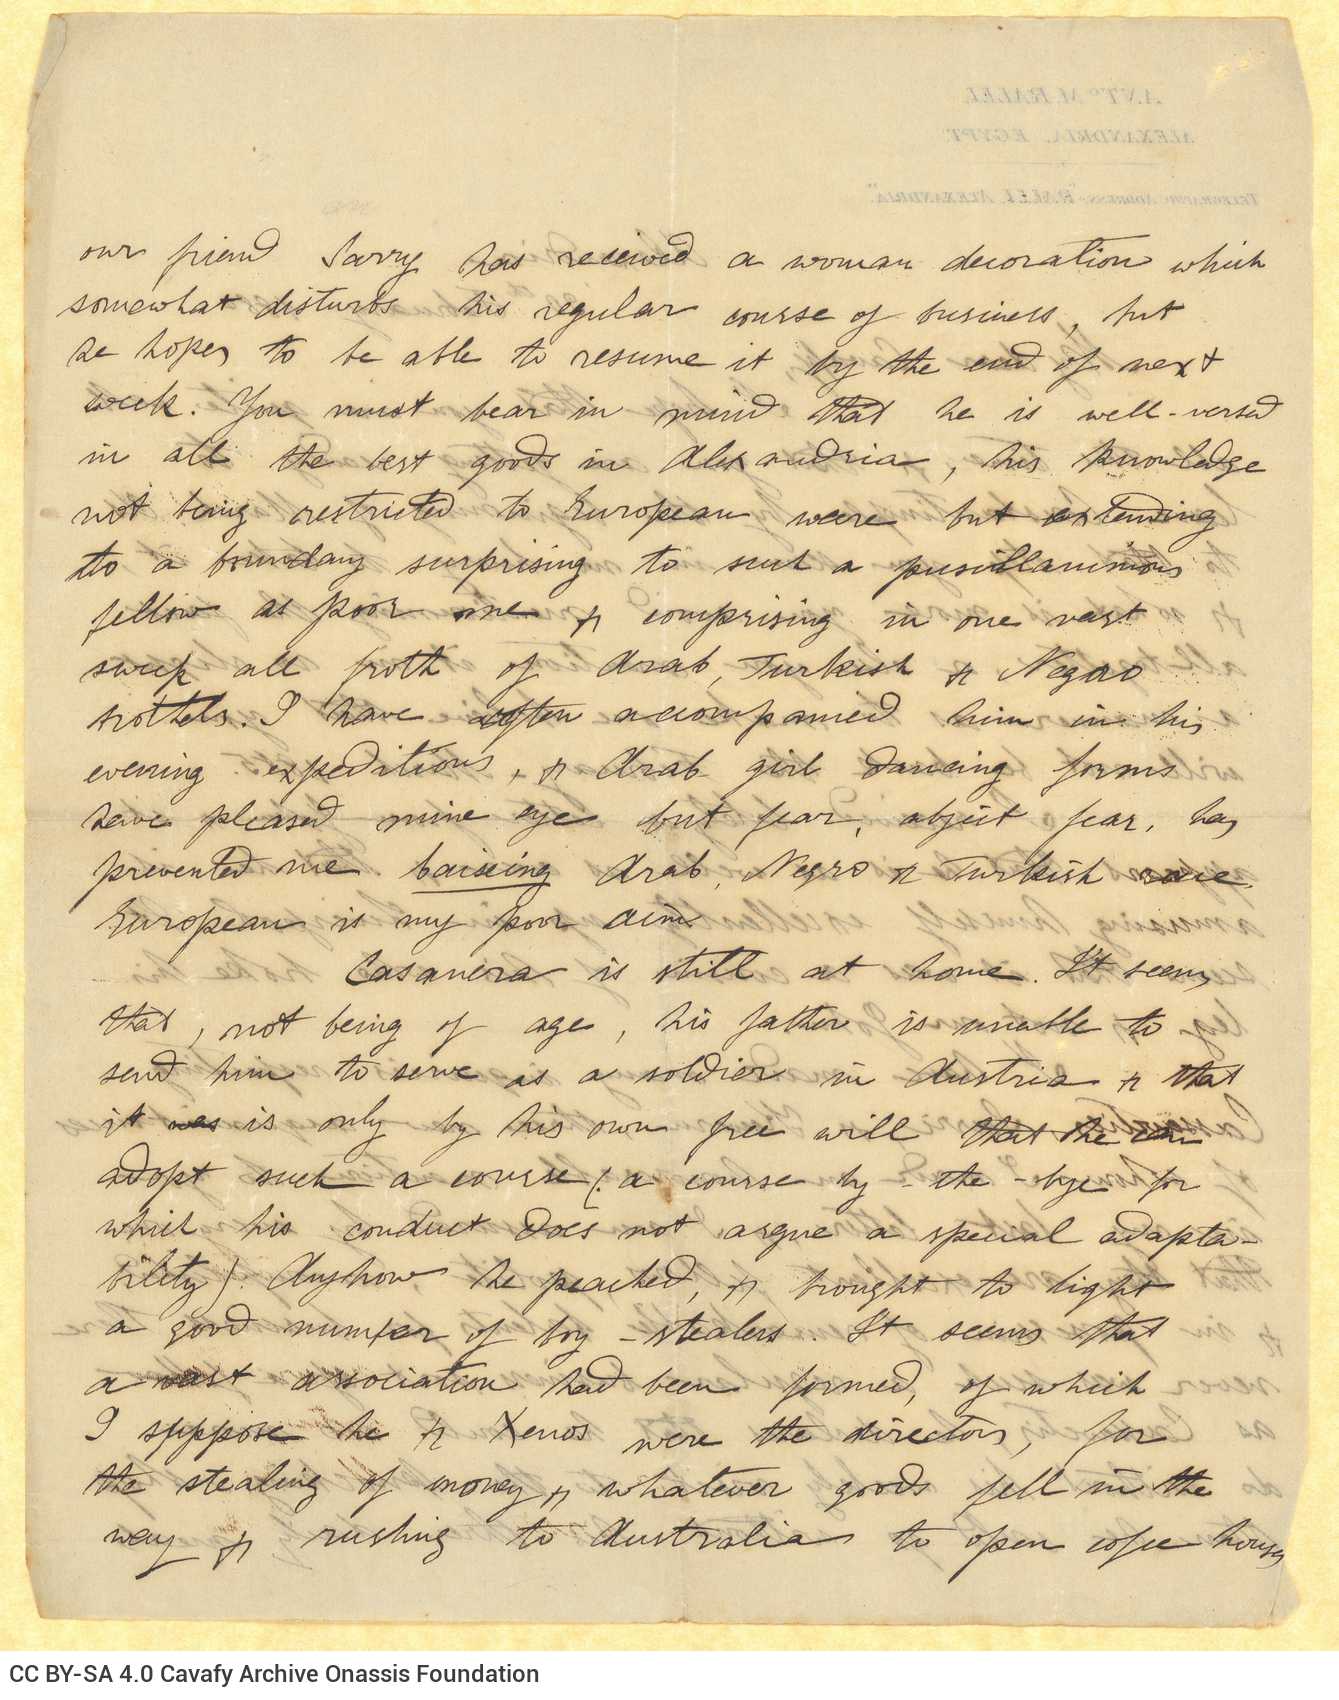 our friend Sarry has received a woman decoration which
somewhat disturbs his regular course of business, but
he hopes to be able to resume it by the end of next
week. You must bear in mind that he is well-versed
in all the best goods in Alexandria, his knowledge
not being restricted to European ware but extending
to a boundary surprising to such a pusillanimous
fellow as poor me & comprising in one vast
sweep all froth of Arab, Turkish & Negro
brothels. I have often accompanied him in his
evening expeditions, & Arab girl dancing forms
have pleased mine eye but fear, abject fear, has
prevented me baiseing Arab, Negro & Turkish
European is my poor aim.
Casanera is still at home. It seems
that, not being of age, his father is unable to
send him to serve as a soldier in Austria & that
it was is only by his own free will that he can
adopt such a course (: a course by-the-bye for
which his conduct does not argue a special adapta-
bility). Anyhow he peached, & brought to light
a good number of boy-stealers. It seems that
a vast association had been formed, of which
I suppose he & Xenos were the directors, for
the stealing of money & whatever goods fell in the
way & rushing to Australia to open cofee houses
ANTº. M. RALLI,
ALEXANDRIA, EGYPT.
TELEGRAPHIC ADDRESS: "RALLI, ALEXANDRIA".
CC BY-SA 4.0 Cavafy Archive Onassis Foundation